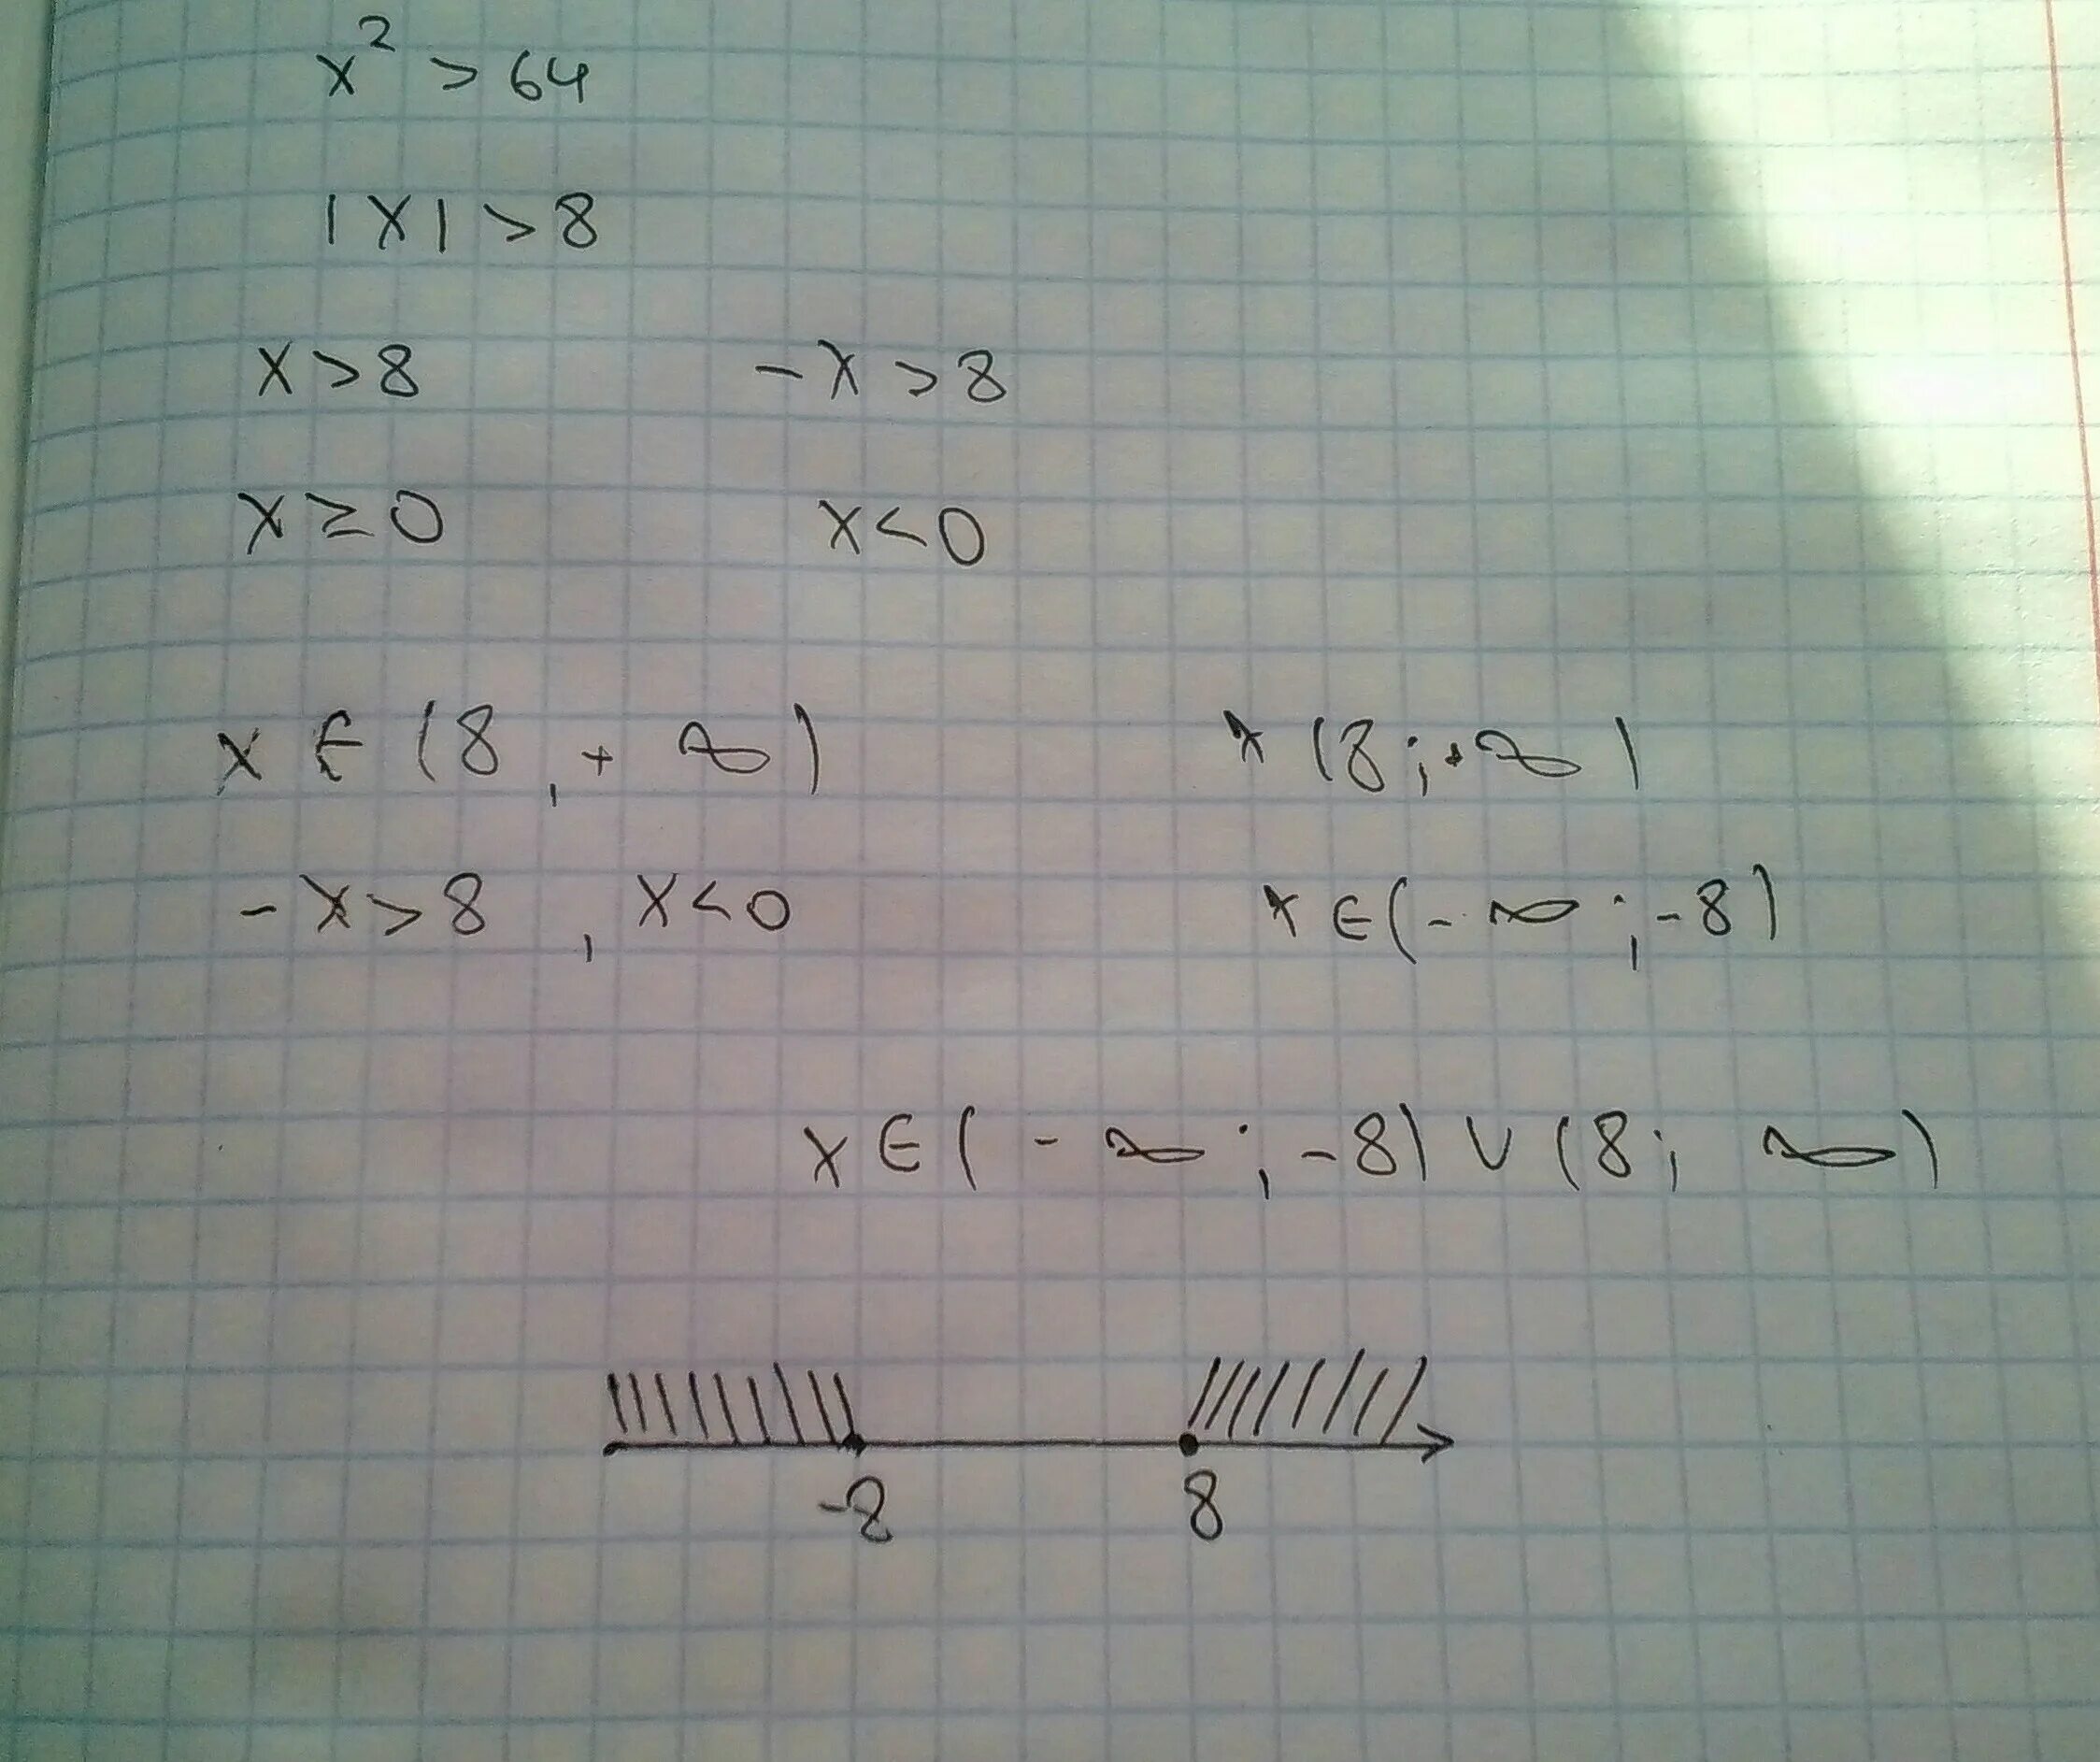 x² > 64
|x| > 8
x > 8 -x > 8
x ≥ 0 x < 0
x ∈ (8, +∞) x (8; +∞)
-x > 8, x < 0 x ∈ (-∞; -8)
x ∈ (-∞; -8) ∪ (8; ∞)
-8 8